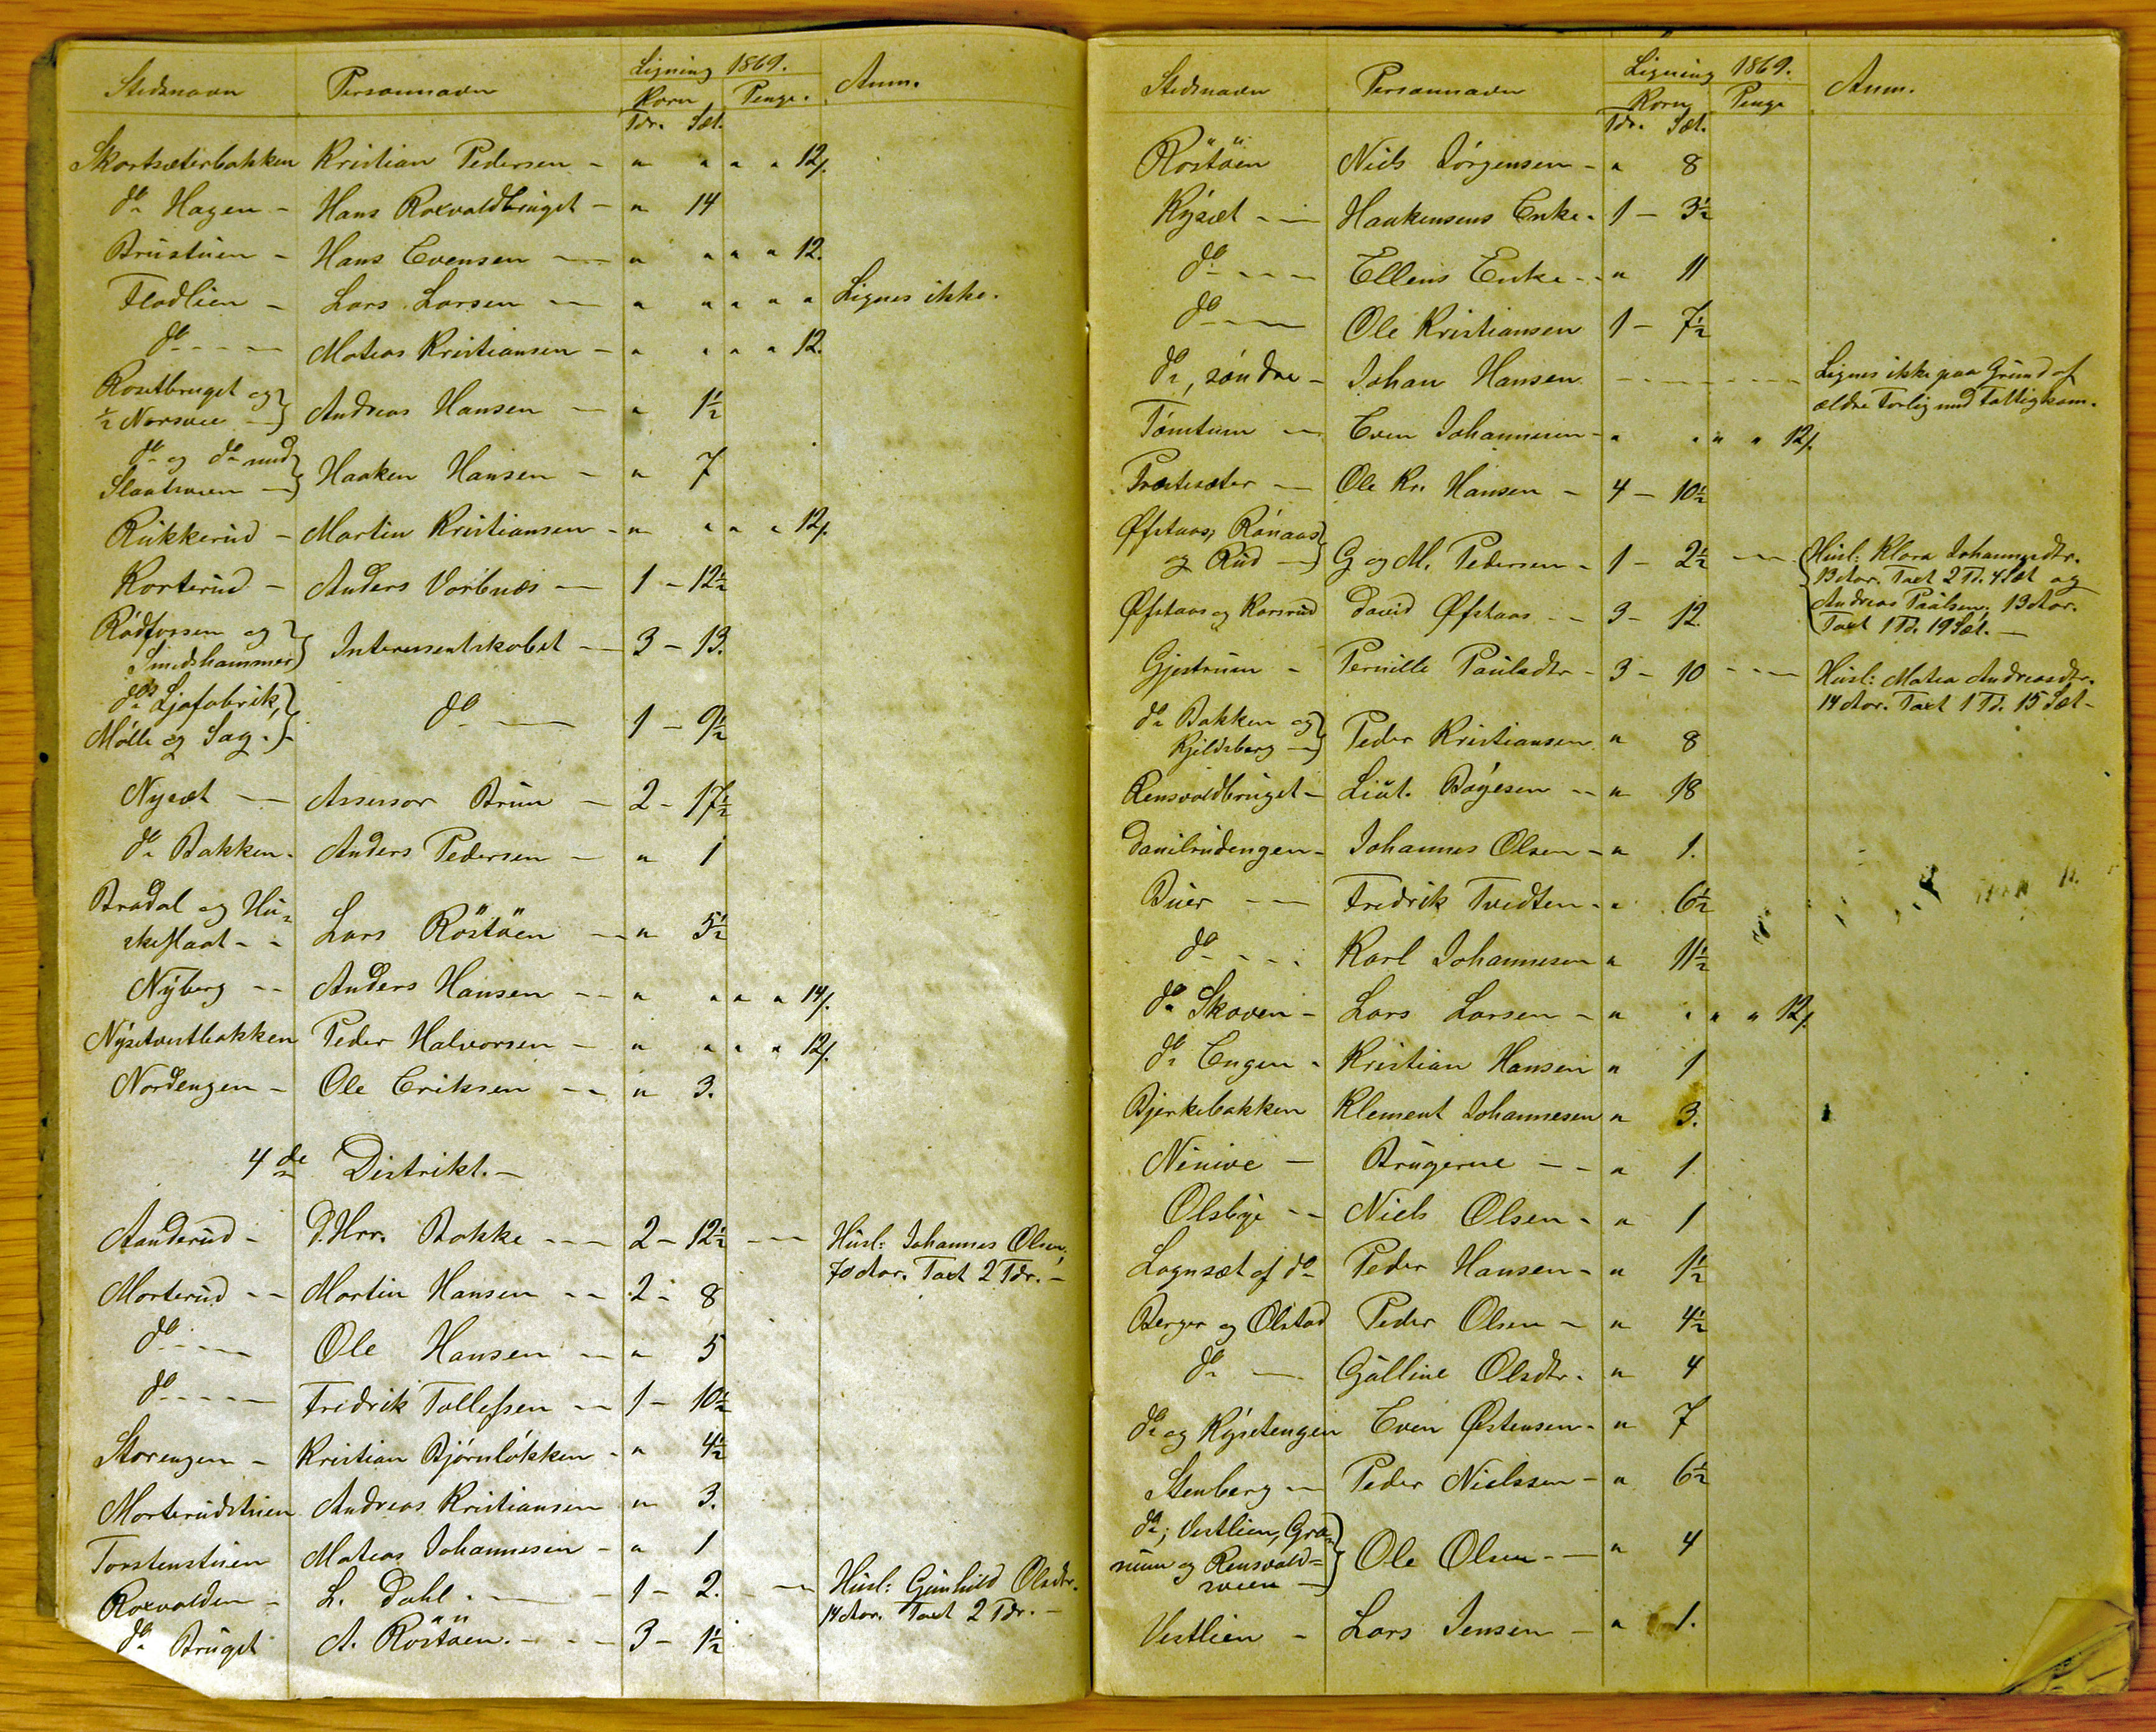 Stedsnavn Personnavn Ligning 1869. Anm.
Korn Penge.
Tdr. Sæt.
Skartsæterbakken Kristian Pedersen - " " " " 12/.
do Hagen - Hans Roxvaldbruget - " 14
Brustuen - Hans Evensen - " " " " 12.
Fladlien - Lars Larsen - " " " " Lignes ikke.
do - - - Mateas Kristiansen - " " " " 12.
Rosetbruget og
½ Norsvee - Andreas Hansen - " 1½
do og do med
Slaatsveen - Haaken Hansen - " 7
Rukkerud - Martin Kristiansen - " " " " 12/.
Korterud - Anders Vorbnæs - 1 - 12½
Rødfossen og
Smedshammer Interessentskabet - 3 - 13.
dos Ljafabrik,
Mølle og Sag. do - 1 - 9½
Nysæt - Assessor Brun - 2 - 17½
do Bakken. Anders Pedersen - " 1
Bradal og Hu-
skeflaat - - Lars Röstöen - " 5½
Nyberg - - Anders Hansen - - " " " " 14/.
Nysetvestbakken Peder Halvorsen - " " " " 12/.
Nordengen - Ole Eriksen - - " 3.
4de Distrikt. -
Aanderud - D.Hrr. Bakke - - - 2 - 12½ - - Husl: Johannes Olsen,
70 Aar. Taxt 2 Tdr. -
Morterud - - Martin Hansen - - 2 - 8
do - - - Ole Hansen - - " 5
do - - - - Fredrik Tollefsen - - 1 - 10½
Storengen - Kristian Bjørnløkken - " 4½
Morterudstuen Andreas Kristiansen " 3.
Torstenstuen Mateas Johannesen - " 1
Roxvalden - L. Dahl. - 1 - 2. - Husl: Gunhild Olsdtr.
14 Aar. Taxt 2 Tdr. -
do Bruget A. Röstöen. - - - 3 - 1½
Stedsnavn Personnavn Ligning 1869. Anm.
Korn Penge
Tdr. Sæt.
Röstöen Niels Jørgensen - " 8
Rysæt - - Haakensens Enke - 1 - 3½
do - - - Ellens Enke - - " 11
do - - Ole Kristiansen 1 - 7½
do, søndre - Johan Hansen - - - - - - Lignes ikke paa Grund af
ældre Forlig med Fattigkom.
Tømtum - Even Johannesen - " " " " 12/.
Præstesæter - Ole Kr. Hansen - 4 - 10½
Øfstaas, Rønaas
og Rud - G og M. Pedersen - 1 - 2½ - - Husl: Klara Johannesdtr.
13 Aar. Taxt 2 Td. 4 Sæt og
Andreas Paulsen. 13 Aar.
Taxt 1 Td. 19 Sæt. -
Øfstaas og Korsrud David Øfstaas - - 3 - 12.
Gjestrum - Pernille Paulsdtr - 3 - 10 - - - Husl: Matea Andreasdtr.
14 Aar. Taxt 1 Td. 15 Sæt -
do Bakken og
Kjeldsberg - Peder Kristiansen " 8
Rensvoldbruget - Liut. Bøyesen - - " 18
Danilrudengen - Johannes Olsen - " 1.
Buer - - Fredrik Tvedten - " 6½
do - - - Karl Johannesen " 11½
do Skoven - Lars Larsen - " " " " 12/.
do Engen - Kristian Hansen " 1
Bjerkebakken Klement Johannesen " 3.
Ninive - Brugerne - - " 1
Olsbye - - Niels Olsen - " 1
Lognsæt af do Peder Hansen - " 1½
Berger og Olstad Peder Olsen - " 4½
do - Gulline Olsdtr. " 4
do og Rysetengen Even Østensen - " 7
Stenberg - Peder Nielssen - " 6½
do; Vestlien, Gra-
num og Rensvold=
sveen - Ole Olsen - - " 4
Vestlien - Lars Jensen - " 1.